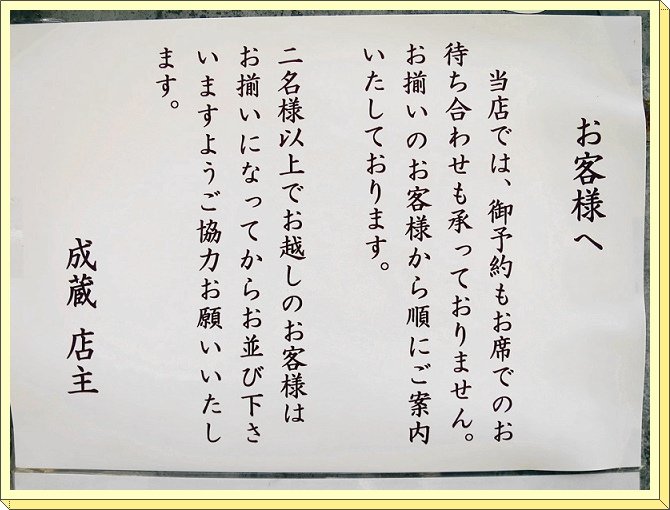 お客様へ
当店では、御予約もお席でのお
待ち合わせも承っておりません。
お揃いのお客様から順にご案内
いたしております。
二名様以上でお越しのお客様は
お揃いになってからお並び下さ
いますようご協力お願いいたし
ます。
成蔵 店主